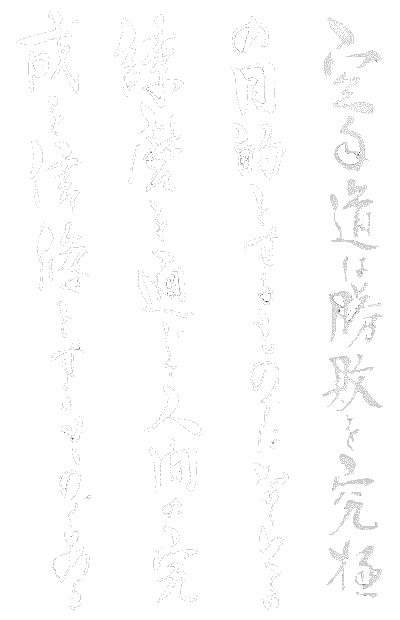 空手道は勝敗を究極
の目的とするもの
錬磨を通して人間の完
成を とするものである